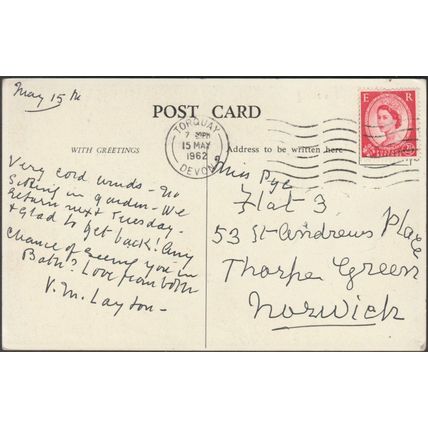 May 15th
POST CARD
WITH GREETINGS
Address to be written here
TORQUAY
7 30PM
15 MAY
1962
DEVON
E R
Very cold winds - No
sitting in garden - We
return next Tuesday.
& glad to get back! Any
chance of seeing you in
Bath? Love from both
V. M. Layton -
Miss Pye
Flat 3
53 St Andrews Place
Thorpe Green
Norwich